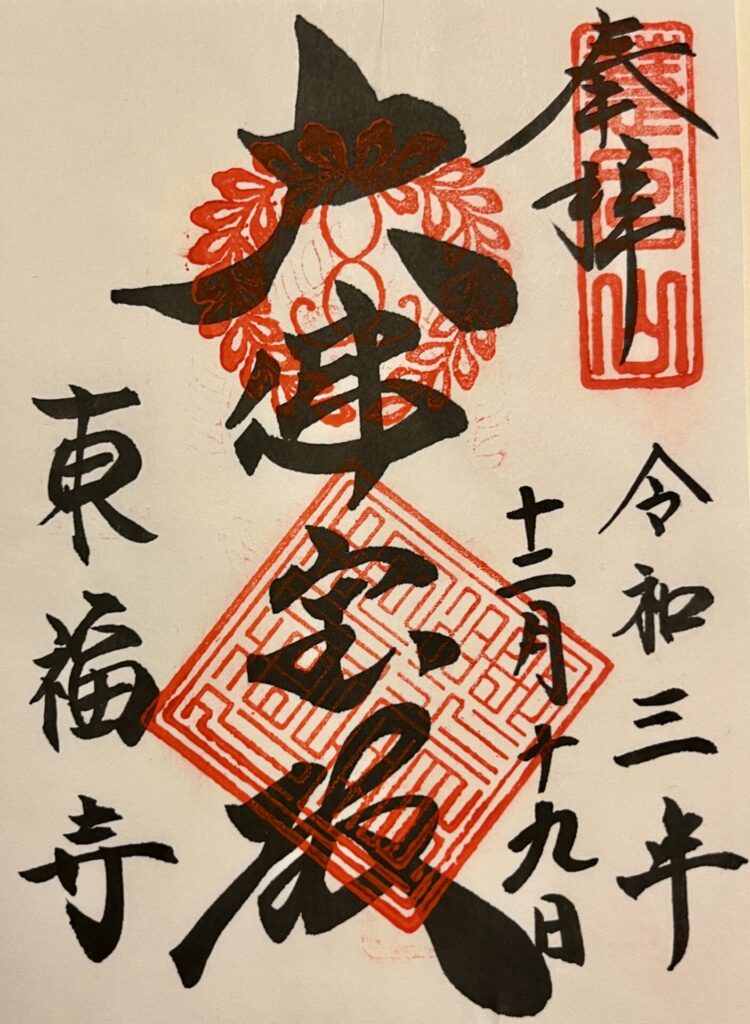 奉拝
慧日山
令和三年
十二月十九日
大佛宝殿
東福寺